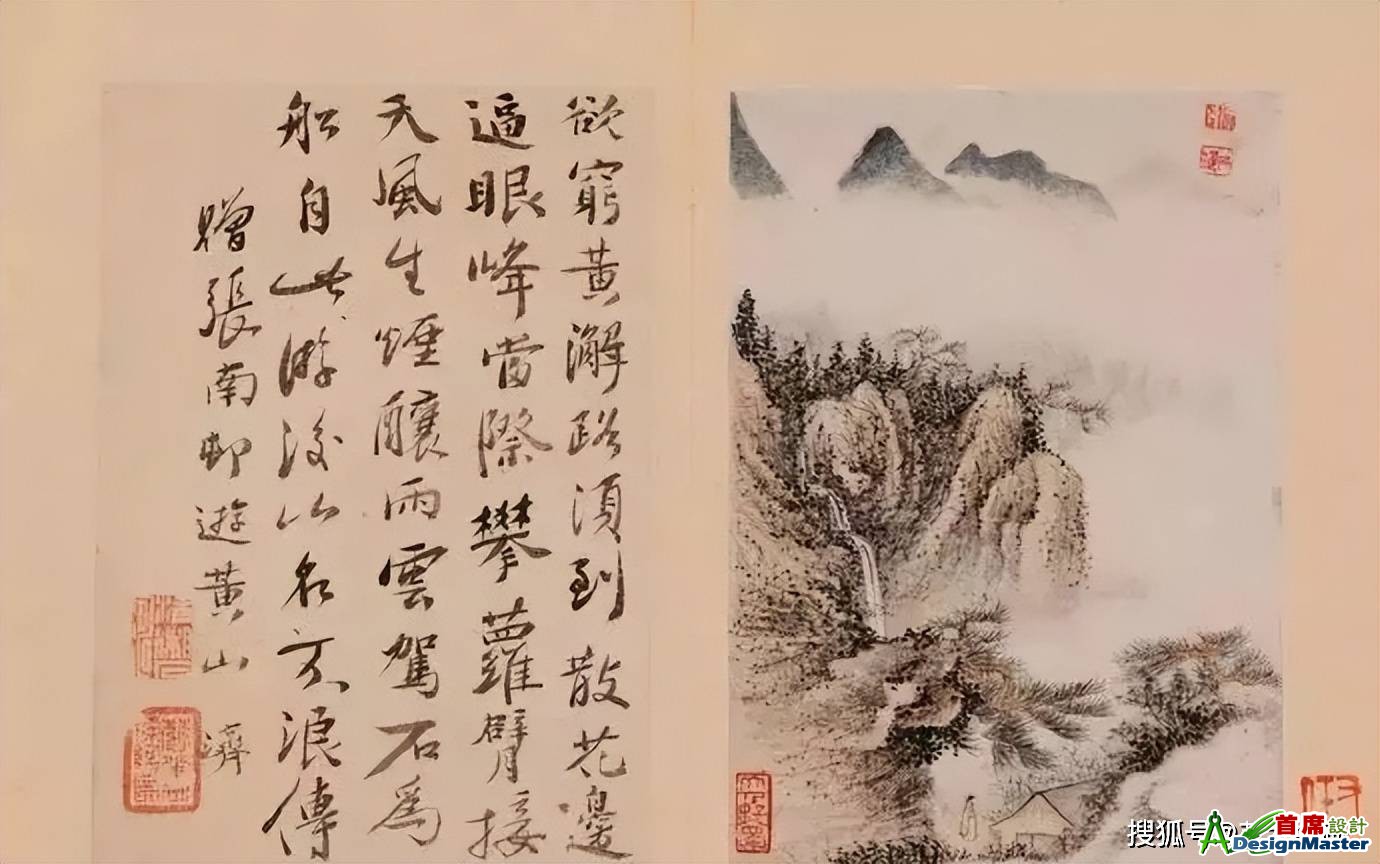 欲窮黃澥路須到散花邊
逼眼峰當際攀蘿臂接
天風生煙釀雨雲駕石為
船自此游後名浪傳
贈張南邨遊黃山 濟
搜狐号@
首席設計
DesignMaster